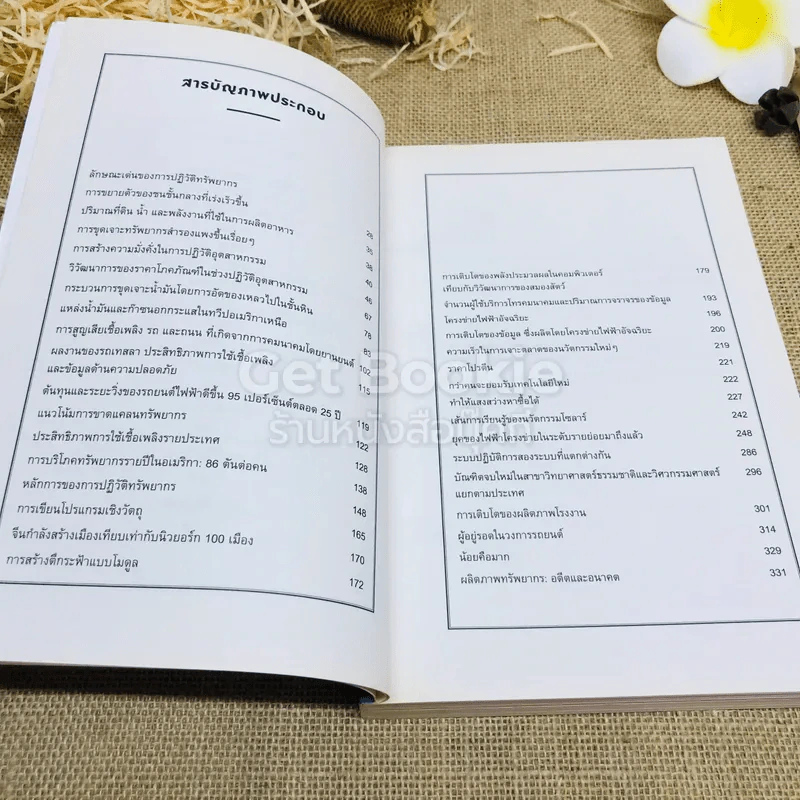 สารบัญภาพประกอบ
ลักษณะเด่นของการปฏิวัติทรัพยากร 28
การขยายตัวของชนชั้นกลางที่เร่งเร็วขึ้น 35
ปริมาณที่ดิน น้ำ และพลังงานที่ใช้ในการผลิตอาหาร 38
การขุดเจาะทรัพยากรสำรองแพงขึ้นเรื่อยๆ 40
การสร้างความมั่งคั่งในการปฏิวัติอุตสาหกรรม 46
วิวัฒนาการของราคาโภคภัณฑ์ในช่วงปฏิวัติอุตสาหกรรม 67
กระบวนการขุดเจาะน้ำมันโดยการอัดของเหลวไปในชั้นหิน 78
แหล่งน้ำมันและก๊าซนอกกระแสในทวีปอเมริกาเหนือ 83
การสูญเสียเชื้อเพลิง รถ และถนน ที่เกิดจากการคมนาคมโดยยานยนต์ 102
ผลงานของรถเทสลา ประสิทธิภาพการใช้เชื้อเพลิง
และข้อมูลด้านความปลอดภัย 115
ต้นทุนและระยะวิ่งของรถยนต์ไฟฟ้าดีขึ้น 95 เปอร์เซ็นต์ตลอด 25 ปี 119
แนวโน้มการขาดแคลนทรัพยากร 122
ประสิทธิภาพการใช้เชื้อเพลิงรายประเทศ 128
การบริโภคทรัพยากรรายปีในอเมริกา: 86 ตันต่อคน 138
หลักการของการปฏิวัติทรัพยากร 148
การเขียนโปรแกรมเชิงวัตถุ 165
จีนกำลังสร้างเมืองเทียบเท่ากับนิวยอร์ก 100 เมือง 170
การสร้างตึกระฟ้าแบบโมดูล 172
การเติบโตของพลังประมวลผลในคอมพิวเตอร์ 179
เทียบกับวิวัฒนาการของสมองสัตว์
จำนวนผู้ใช้บริการโทรคมนาคมและปริมาณการจราจรของข้อมูล 193
โครงข่ายไฟฟ้าอัจฉริยะ 196
การเติบโตของข้อมูล ซึ่งผลิตโดยโครงข่ายไฟฟ้าอัจฉริยะ 200
ความเร็วในการเจาะตลาดของนวัตกรรมใหม่ๆ 219
ราคาโปรตีน 221
กว่าคนจะยอมรับเทคโนโลยีใหม่ 222
ทำให้แสงสว่างหาซื้อได้ 227
เส้นการเรียนรู้ของนวัตกรรมโซลาร์ 242
ยุคของไฟฟ้าโครงข่ายในระดับรายย่อยมาถึงแล้ว 248
ระบบปฏิบัติการสองระบบที่แตกต่างกัน 286
บัณฑิตจบใหม่ในสาขาวิทยาศาสตร์ธรรมชาติและวิศวกรรมศาสตร์ 296
แยกตามประเทศ
การเติบโตของผลิตภาพโรงงาน 301
ผู้อยู่รอดในวงการรถยนต์ 314
น้อยคือมาก 329
ผลิตภาพทรัพยากร: อดีตและอนาคต 331
Get Bookie
ร้านหนังสือกู๊ดกี่